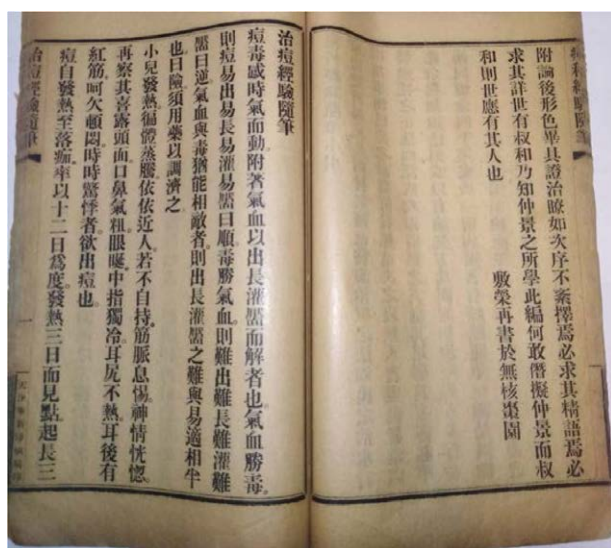 附論後形色畢具證治瞭如次序不紊擇焉必求其精語焉必
求其詳世有叔和乃知仲景之所學此編何敢僭擬仲景而叔
和則世應有其人也
敷榮再書於無核棗園
治痘經驗隨筆
痘毒感時氣而動附著氣血以出長灌靨而解者也。氣血勝毒。
則痘易出易長易灌易靨曰順。毒勝氣血。則難出難長難灌難
靨曰逆。氣血與毒猶能相敵者。則出長灌靨之難與易適相半
也曰險。須用藥以調濟之
小兒發熱。徧體蒸騰。依依近人。若不自持。筋脈息惕。神情恍惚。
再察其喜露頭面。口鼻氣粗。眼唌。中指獨冷。耳尻不熱。耳後有
紅筋。呵欠頓悶。時時驚悸者。欲出痘也。
痘自發熱至落痂。率以十二日為度。發熱三日而見點。起長三
治痘經驗隨筆
一